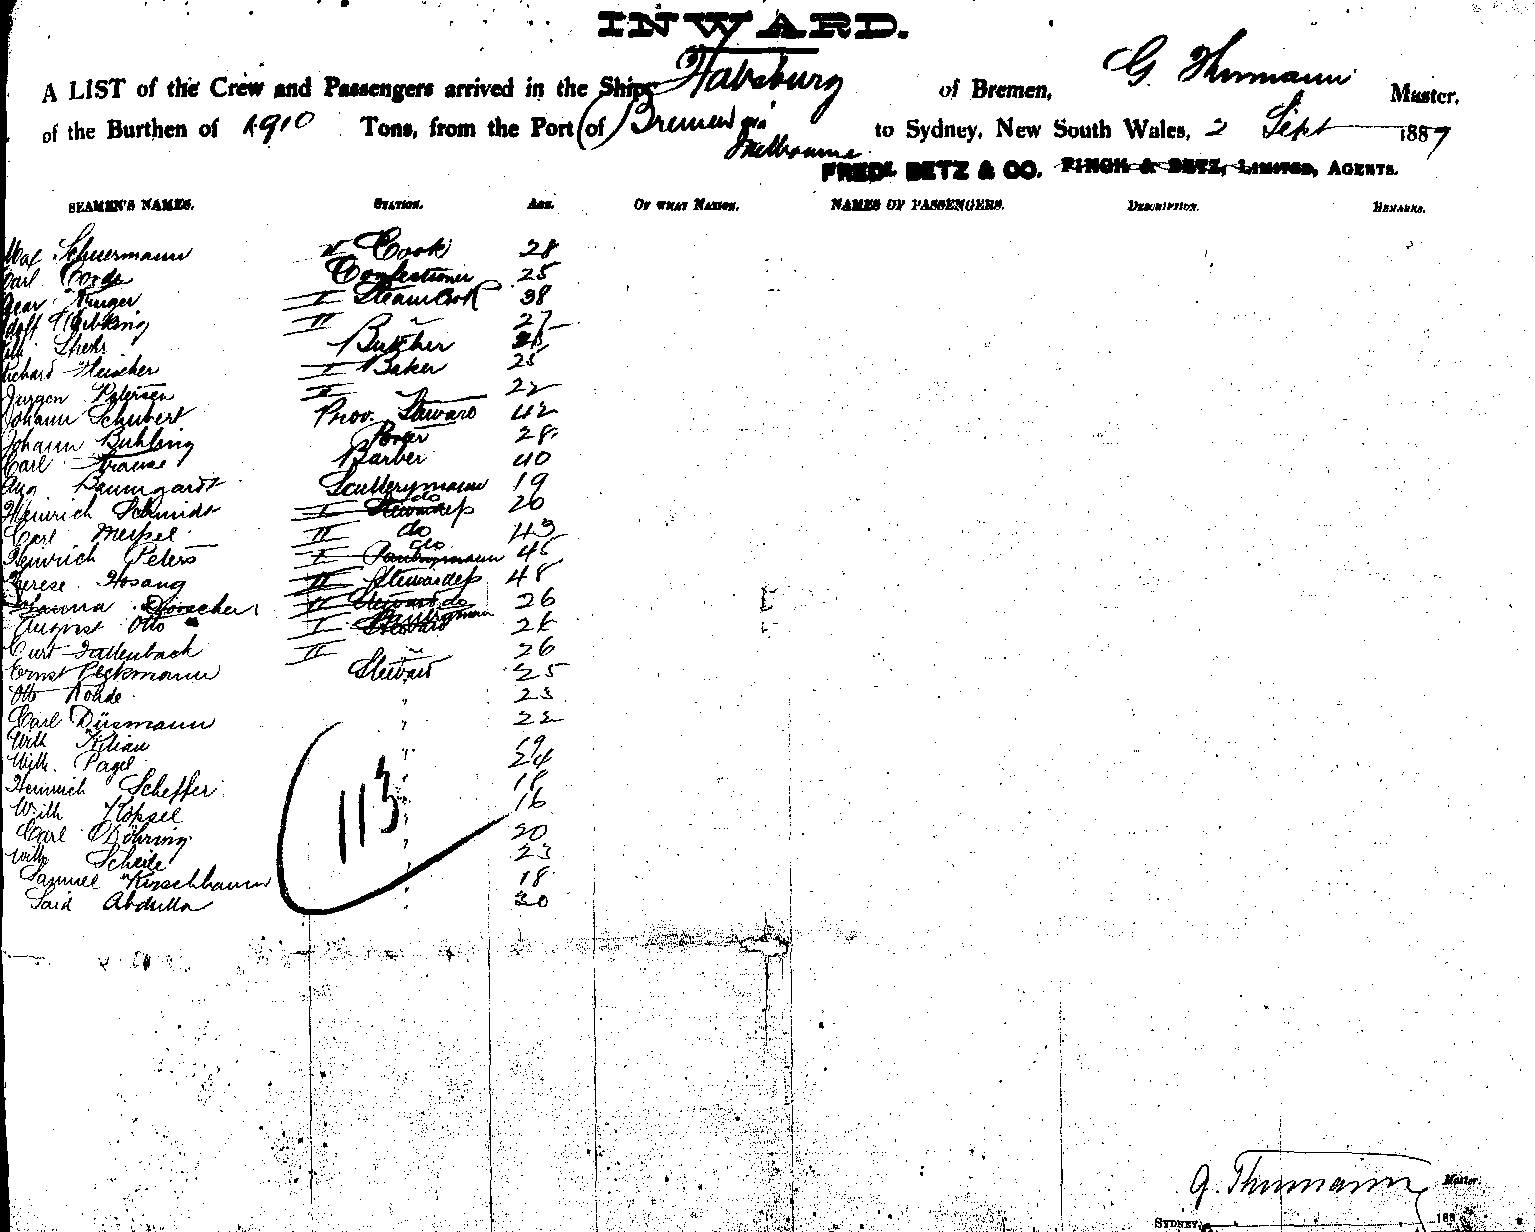 INWARD.
A LIST of the Crew and Passengers arrived in the Ship Habsburg of Bremen, G. Thurmann Master,
of the Burthen of 1910 Tons, from the Port of Bremen via to Sydney, New South Wales, 2 Sept 1887
Melbourne
FREDK BETZ & CO. FINCK & BETZ, LIMITED, AGENTS.
SEAMEN'S NAMES. STATION. AGE. OF WHAT NATION. NAMES OF PASSENGERS. DESCRIPTION. REMARKS.
Max Schuermann II Cook 28
Carl Cordes Confectioner 25
Kruger I Steam Cook 38
Adolf II 27
Butcher
Richard Fleischer I Baker 25
Jurgen Petersen II 22
Johann Schubert Prov. Steward 42
Johann Buhling Porter 28
Carl Krause Barber 40
Aug. Baumgardt Scullerymann 19
Heinrich Schmidt I do 26
Carl II do 43
Heinrich Peters I Pantrymann do 45
Therese Hosang II Stewardess 48
Johanna 26
August Otto I Pantryman 24
Curt Fallenbach II 26
Ernst Peckmann Steward 25
Otto Rohde " 23
Carl Düsmann " 22
Wilh Kilian " 19
Wilh. Pagel " 24
Heinrich Scheffer " 18
Wilh Köpsel " 16
Carl Döhring " 20
Wilh Scheele " 23
Samuel Kirschbaum " 18
Said Abdulla " 30
113
G. Thurmann Master.
SYDNEY, 188